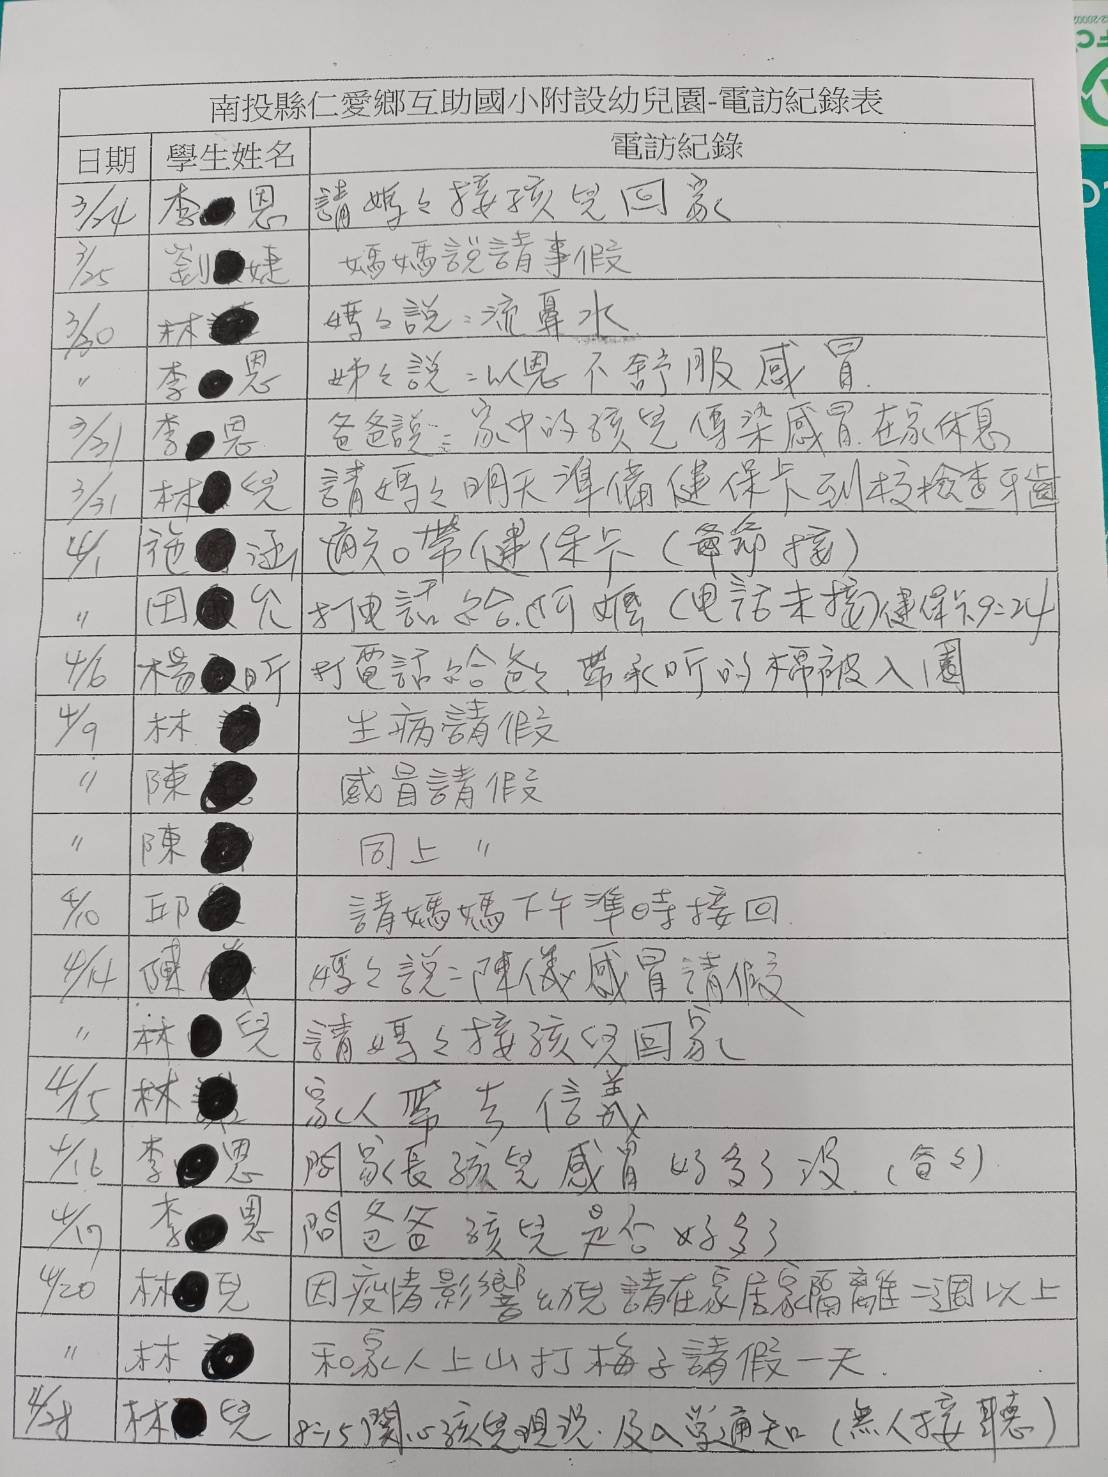 南投縣仁愛鄉互助國小附設幼兒園-電訪紀錄表
日期 學生姓名 電訪紀錄
3/24 李 恩 請媽々接孩兒回家
3/25 劉 婕 媽媽說請事假
3/30 林 媽々說:流鼻水
〃 李 恩 姊々說:以恩不舒服感冒.
3/31 李 恩 爸爸說:家中的孩兒傳染感冒.在家休息
3/31 林 兒 請媽々明天準備健保卡到校檢查牙齒
4/1 施 涵 通知帶健保卡( 接)
〃 田 允 打電話給阿嬤(電話未接)健保卡9:24
4/6 楊 昕 打電話給爸々.帶承昕的棉被入園
4/9 林 生病請假
〃 陳 感冒請假
〃 陳 同上 〃
4/10 邱 請媽媽下午準時接回.
4/14 陳 媽々說:陳儀感冒請假
〃 林 兒 請媽々接孩兒回家
4/15 林 家人帶去信義
4/16 李 恩 問家長孩兒感冒好多了沒.(爸々)
4/19 李 恩 問爸爸孩兒是否好多了
4/20 林 兒 因疫情影響幼兒請在家居家隔離二週以上
〃 林 和家人上山打梅子請假一天.
4/28 林 兒 8:15關心孩兒現況.及入學通知(無人接聽)